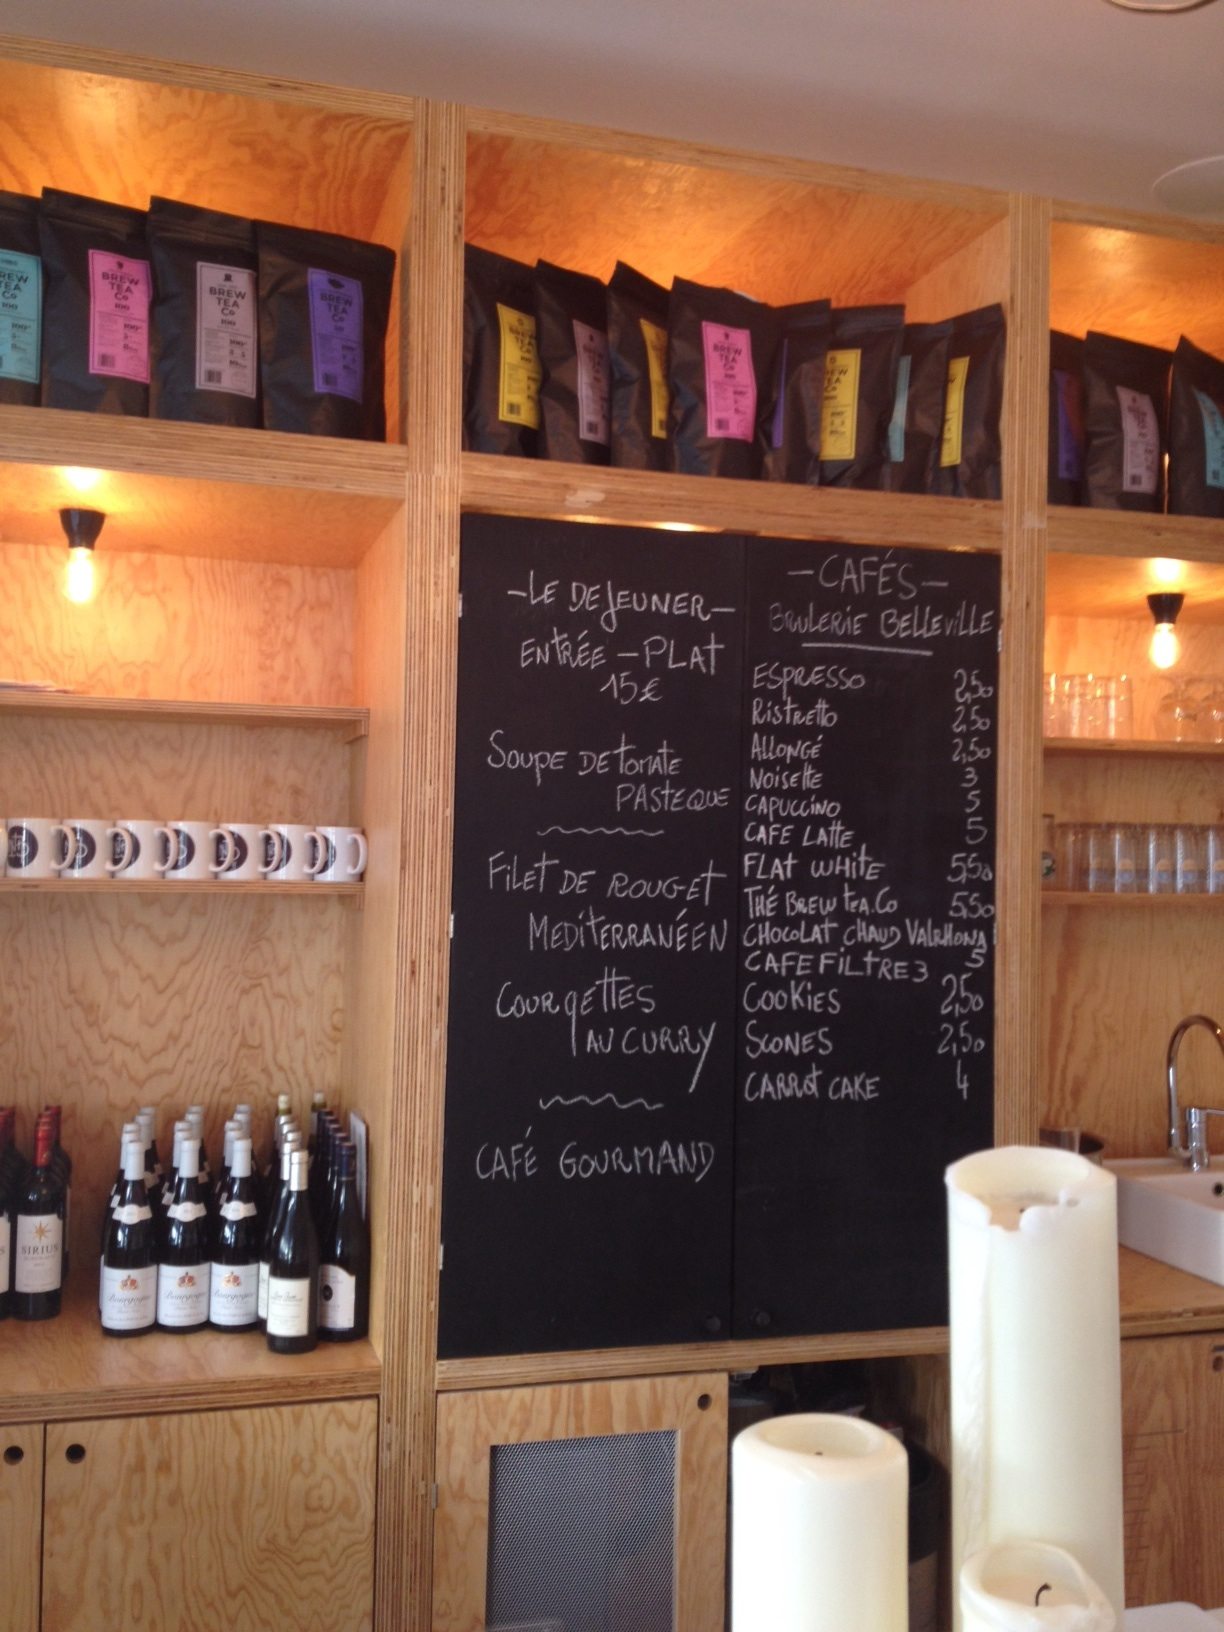 BREW
TEA
Co
100
BREW
TEA
Co
100
BREW
TEA
Co
BREW
TEA
Co
-LE DEJEUNER-
ENTRÉE - PLAT
15€
SOUPE DE TOMATE
PASTEQUE
FILET DE ROUGET
MEDITERRANÉEN
COURGETTES
AU CURRY
CAFÉ GOURMAND
-CAFÉS-
BRULERIE BELLEVILLE
ESPRESSO 2,50
RISTRETTO 2,50
ALLONGÉ 2,50
NOISETTE 3
CAPUCCINO 5
CAFE LATTE 5
FLAT WHITE 5,50
THÉ BREW TEA.CO 5,50
CHOCOLAT CHAUD VALRHONA
5
CAFE FILTRE 3
COOKIES 2,50
SCONES 2,50
CARROT CAKE 4
SIRIUS
Bourgogne
Bourgogne
Bourgogne